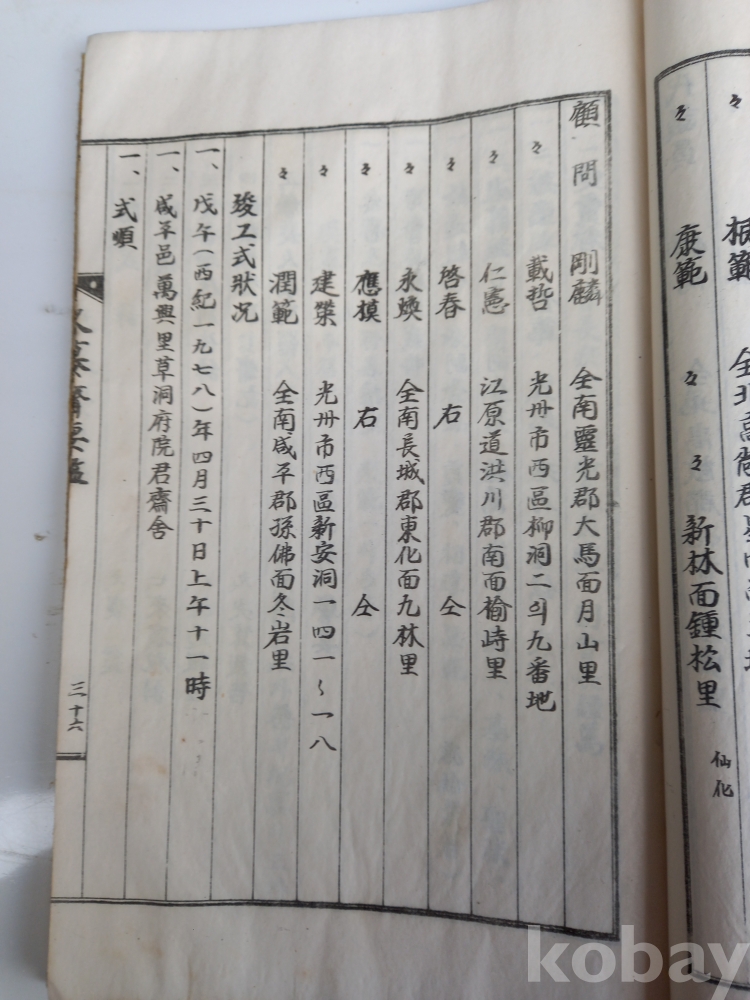 々 根範 全北高敞郡
々 康範 々 々 新林面鍾松里 仙化
顧問 剛麟 全南靈光郡大馬面月山里
々 載哲 光州市西區柳洞二의九番地
々 仁憲 江原道洪川郡南面楡峙里
々 啓春 右 仝
々 永煥 全南長城郡東化面九林里
々 應模 右 仝
々 建榮 光州市西區新安洞一四一~一八
々 潤範 全南咸平郡孫佛面冬岩里
竣工式狀況
一、戊午(西紀一九七八)年四月三十日上午十一時
一、咸平邑萬興里草洞府院君齋舍
一、式順
三十六
kobay